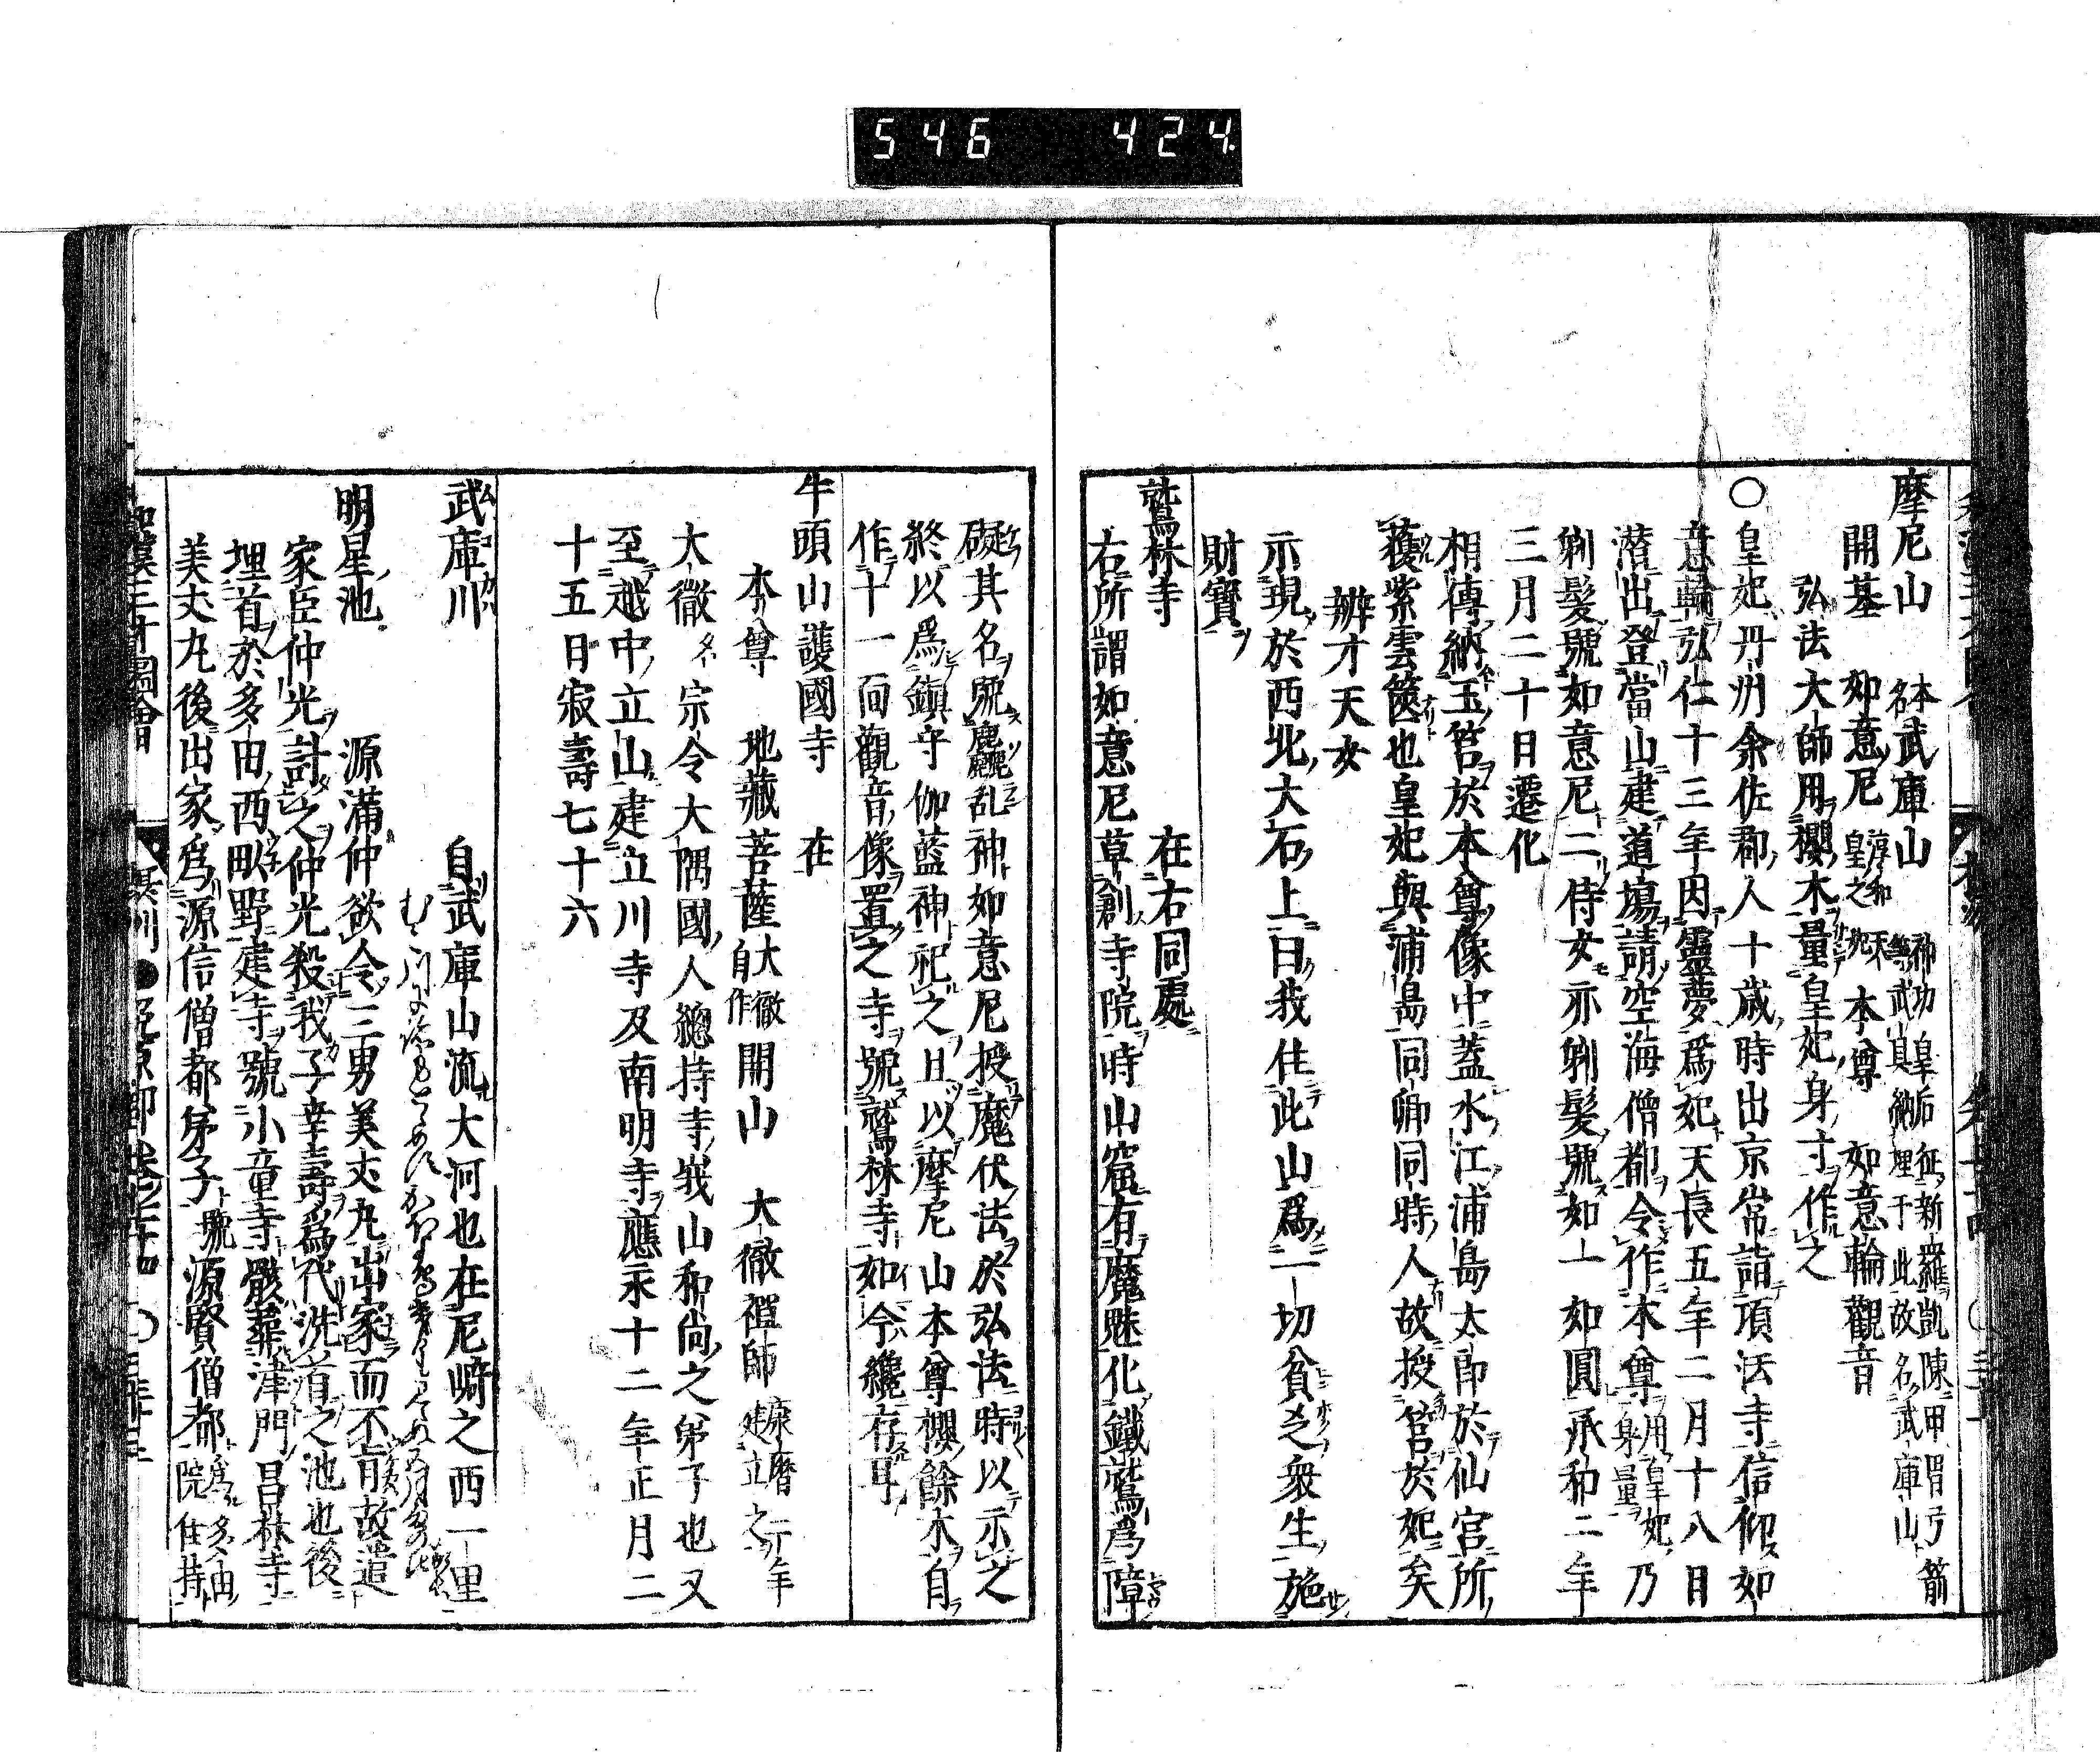 546 424
摩尼山 本名武庫山 神功皇后征新羅凱陳甲冑弓箭
等武具納埋于此故名武庫山
開基 如意尼 淳和天皇之妃 本尊 如意輪觀音
弘法大師用櫻木量皇妃身寸作之
〇皇妃丹州余佐郡人十歳時出京常詣頂法寺信仰如
意輪弘仁十三年因靈夢爲妃天長五年二月十八日
潜出登當山建道場請空海僧都令作本尊用皇妃身量乃
剃髮號如意尼二侍女亦剃髮號如一如圓承和二年
三月二十日遷化
相傳納玉筥於本尊像中蓋水江浦島太郎於仙宮所
獲紫雲篋也皇妃與浦島同鄕同時人故授筥於妃矣
辨才天女
示現於西北大石上曰我住此山爲一切貧乏衆生施
財寳
鷲林寺 在右同處
右所謂如意尼草創寺院時山窟有魔魅化鐵鷲爲障
礙其名號麁乱神如意尼授魔伏法於弘法時以示之
終以爲鎮守伽藍神祀之且以摩尼山本尊櫻餘木自
作十一面觀音像置之寺號鷲林寺如今纔存耳
牛頭山護國寺 在
本尊 地藏菩薩 大徹自作 開山 大徹禪師 康暦二年建立之
大徹 名宗令大隅國人總持寺峩山和尚之弟子也又
至越中立山建立川寺及南明寺應永十二年正月二
十五日寂壽七十六
武庫川 自武庫山流大河也在尼崎之西一里
明星池 源滿仲欲令三男美丈丸出家而不肯故遣
家臣仲光計之仲光殺我子幸壽爲代洗首之池也後
埋首於多田西畝野建寺號小童寺骸葬津門昌林寺
美丈丸後出家爲源信僧都弟子號源賢僧都爲多田院住持